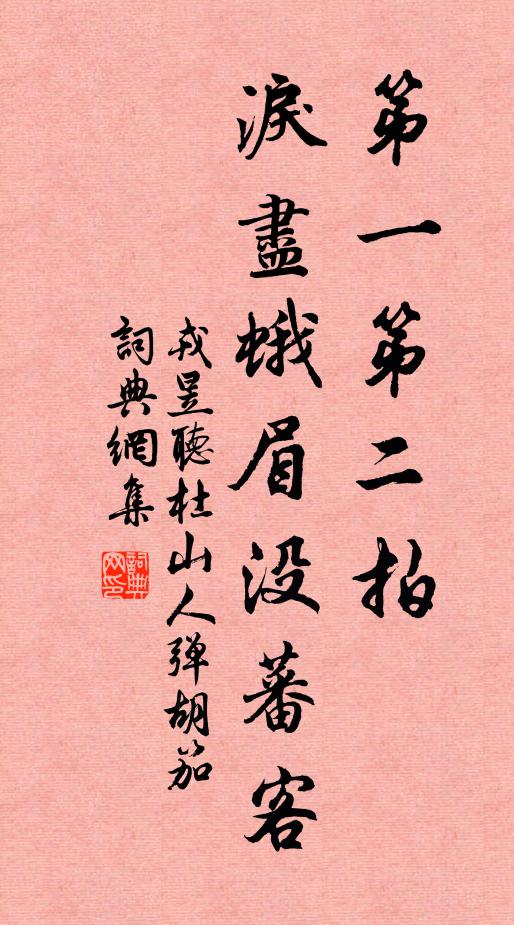 第一第二拍
淚盡蛾眉沒蕃客
戎昱聽杜山人弹胡笳
詞典網集
詞典网印